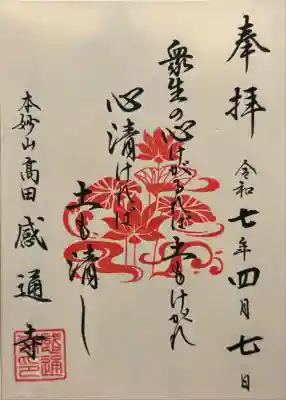 奉拝
令和七年四月七日
衆生の心けがるれば土もけがれ
心清ければ
土も清し
本妙山高田感通寺
感通寺印